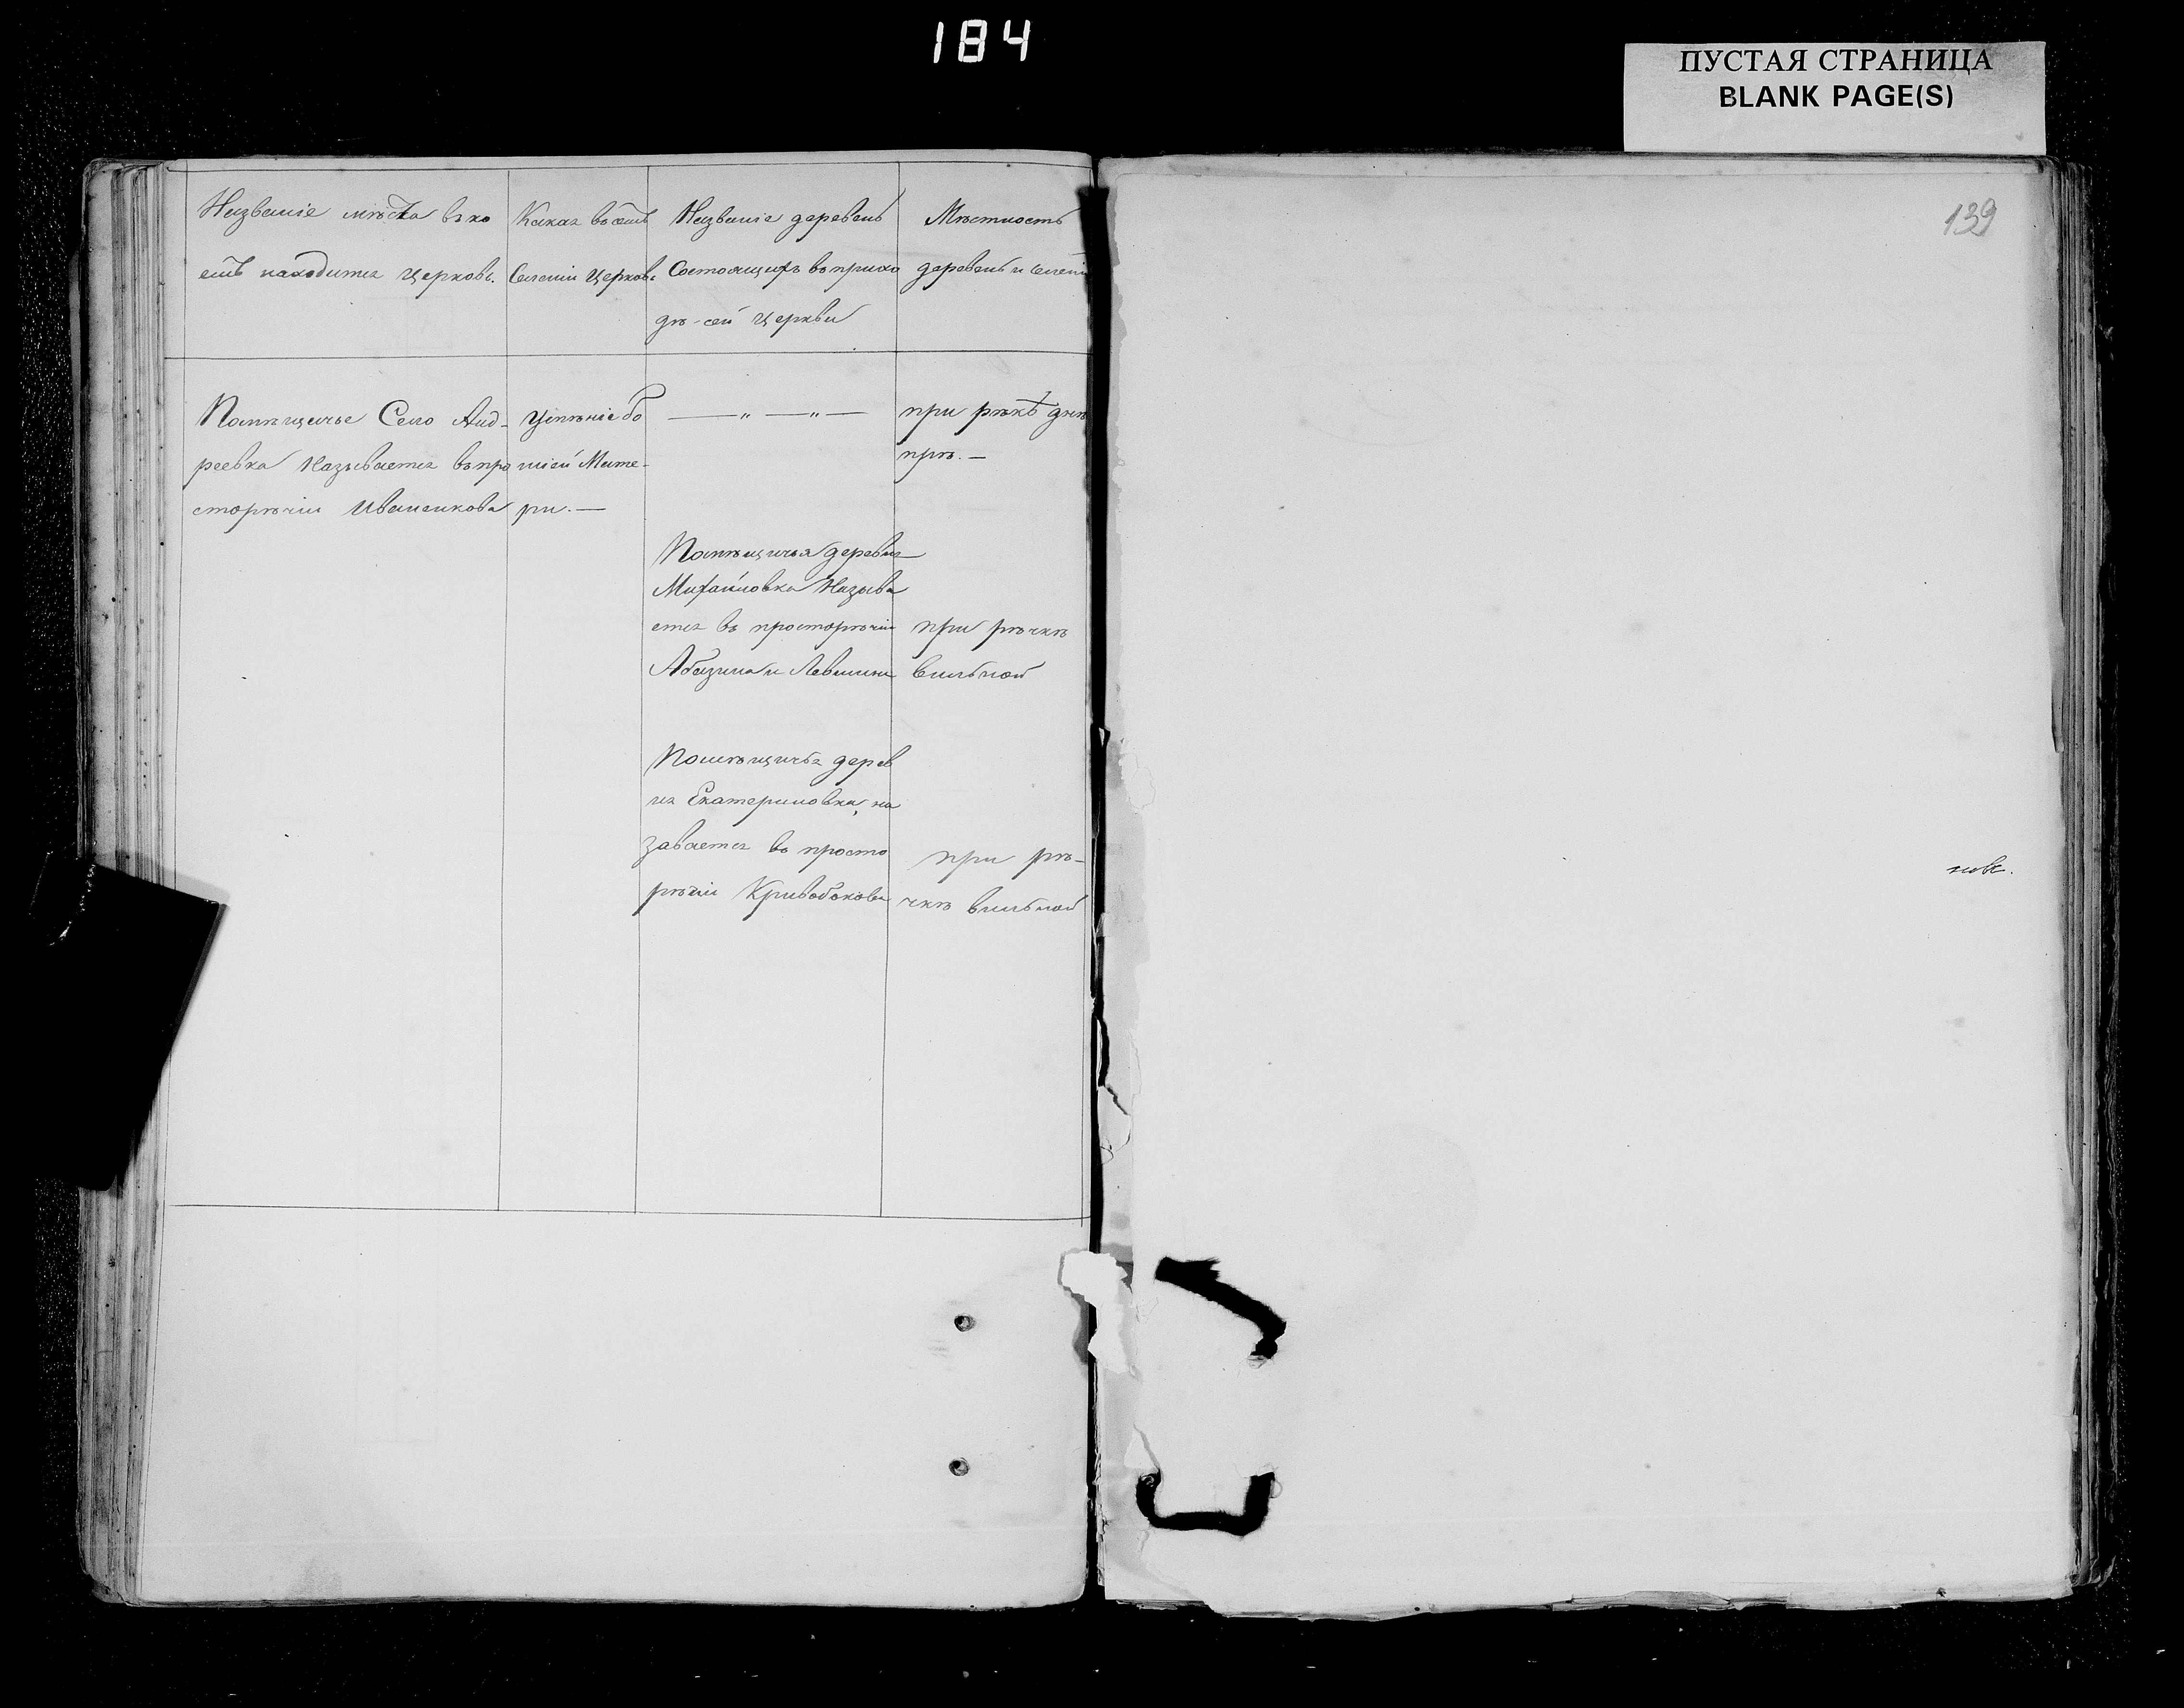 184
ПУСТАЯ СТРАНИЦА
BLANK PAGE(S)
139
Названіе мѣста въ ко
емъ находится Церковь.
Какая въ семъ
Селеніи Церковь
Названіе деревень
Состоящихъ въ прихо
дѣ сей Церкви
Мѣстность
деревень и селеній
Помѣщичье Село Анд-
реевка Называется въ про
сторѣчіи Иваненкова
Успѣніе бо
жіей Мате-
ри. —
— „ — „ —
при рѣкѣ днѣ
прѣ. —
Помѣщичья деревня
Михайловка Называ
ется въ просторѣчіи
Абазина и Левшина
при рѣчкѣ
Вильной
Помѣщичья дерев
ня Екатериновка, на
зывается въ просто
рѣчіи Кривобокова
при рѣ-
чкѣ Вильной